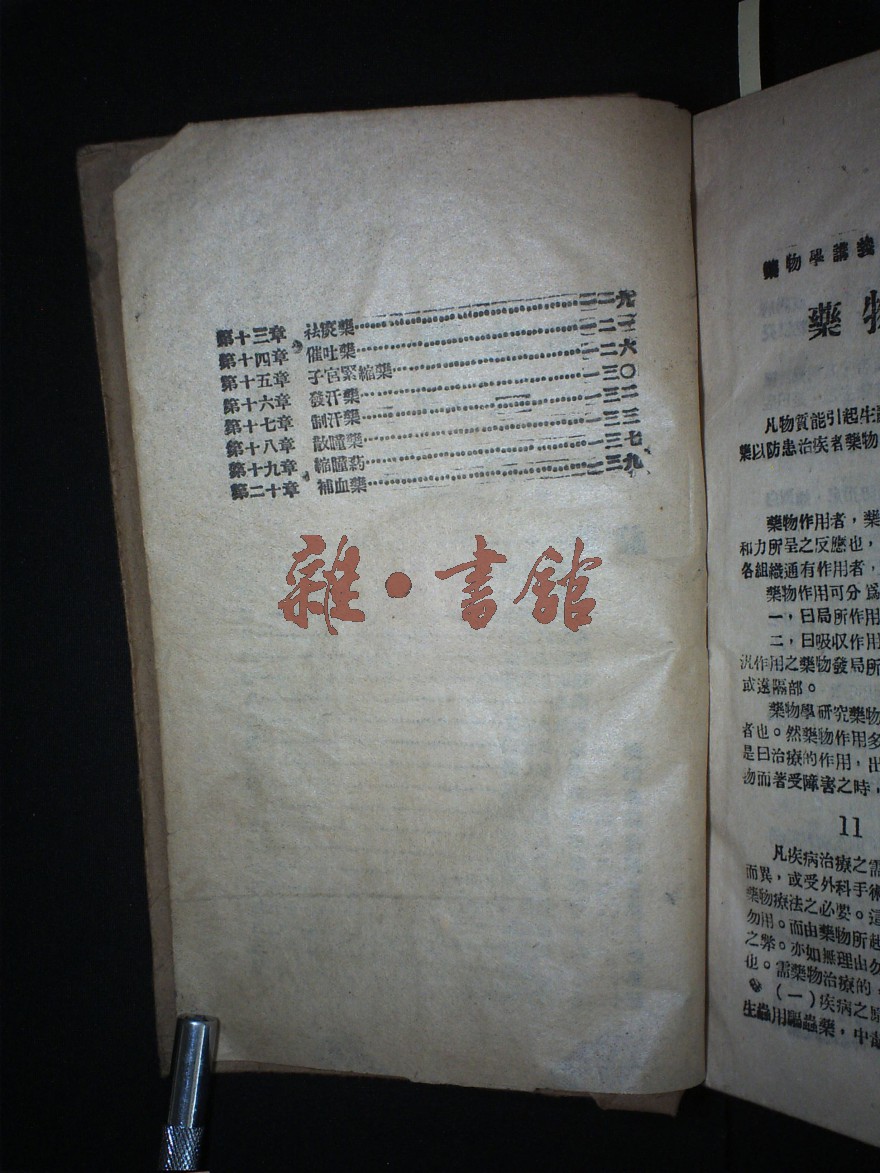 第十三章 祛痰藥
第十四章 催吐藥 一二三
第十五章 子宮緊縮藥 一二六
第十六章 發汗藥 一三〇
第十七章 制汗藥 一三二
第十八章 散瞳藥 一三三
第十九章 縮瞳药 一三七
第二十章 補血藥 一三九
雜·書館
藥物學講義
藥物
凡物質能引起生
藥以防患治疾者藥物
藥物作用者，藥
和力所呈之反應也，
各組織通有作用者，
藥物作用可分爲
一，曰局所作用
二，曰吸収作用
汎作用之藥物發局所
或遠隔部。
藥物學研究藥物
者也。然藥物作用多
是曰治療的作用，出
物而著受障害之時，
11
凡疾病治療之需
而異，或受外科手術
藥物療法之必要。這
勿用。而由藥物所起
之弊。亦如無理由勿
也。需藥物治療的，
（一）疾病之原
生蟲用驅蟲藥，中毒